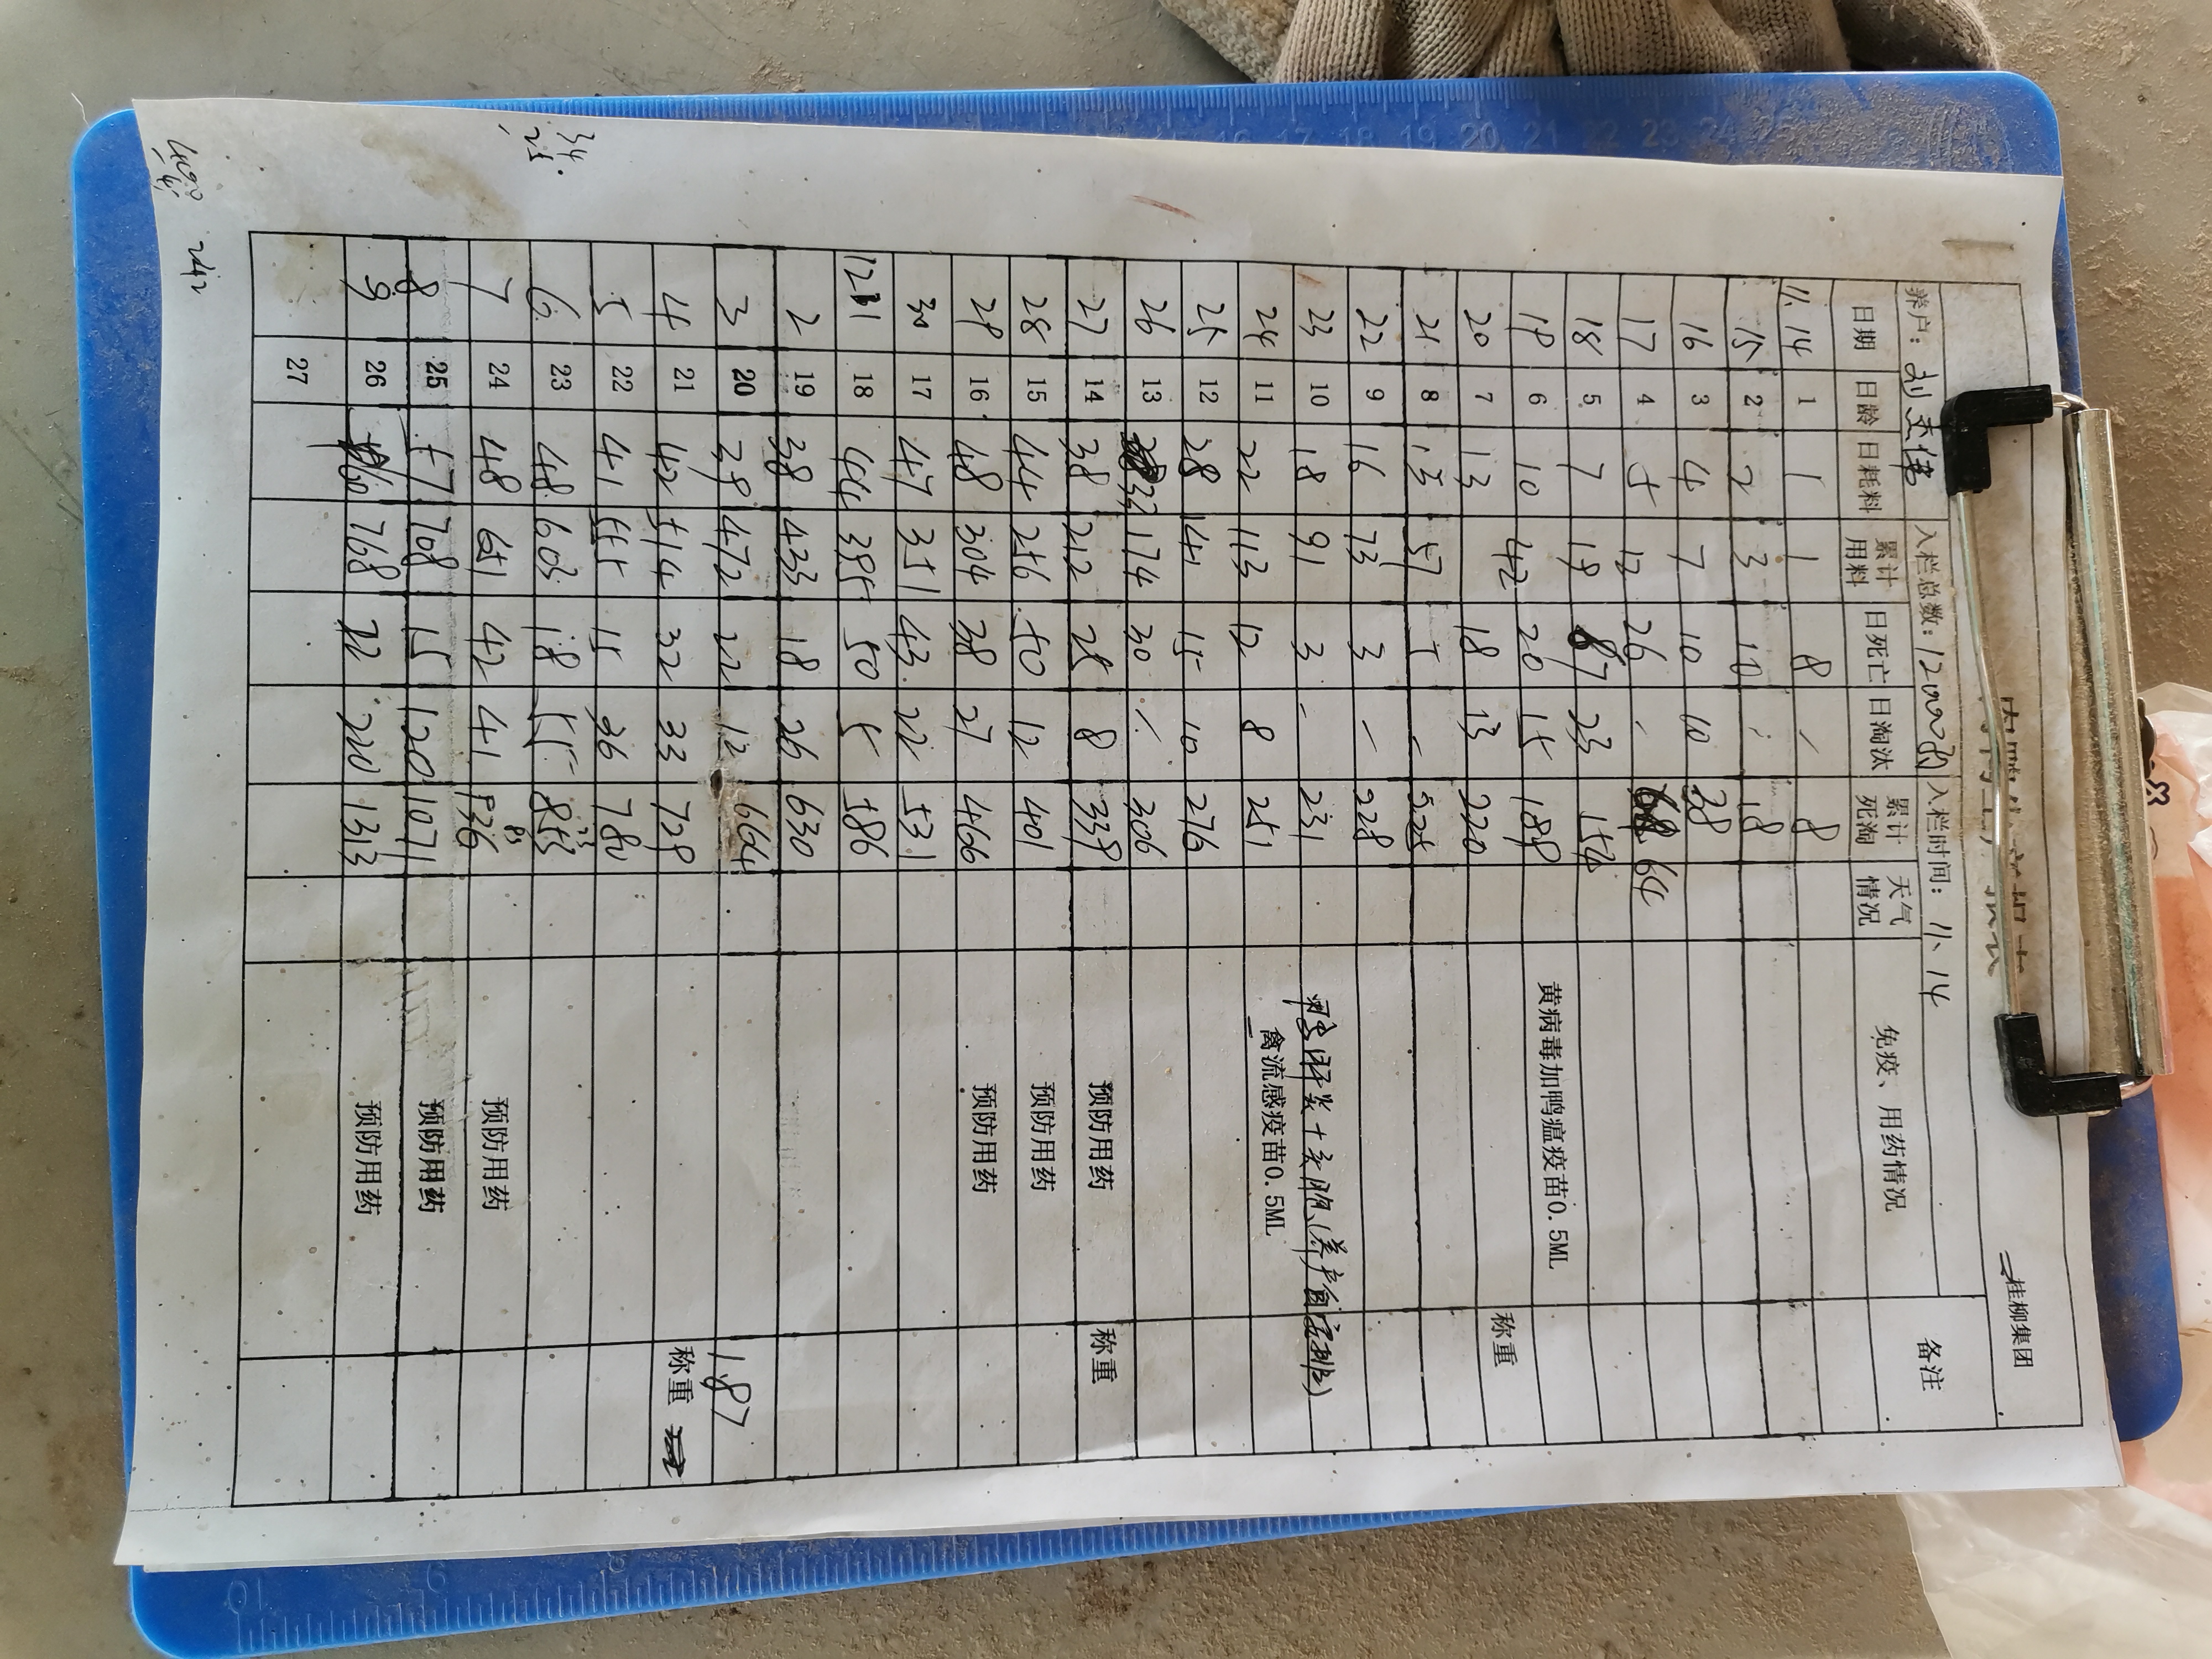 桂柳集团
养户: 刘 入栏总数: 12000 入栏时间: 11、14
日期 日龄 日耗料 累计用料 日死亡 日淘汰 累计死淘 天气情况 免疫、用药情况 备注
11.14 1 1 1 8 / 8
15 2 2 3 10 / 18
16 3 4 7 10 10 38
17 4 5 12 26 / 64
18 5 7 19 67 23 154
19 6 10 20 15 189 黄病毒加鸭瘟疫苗0.5ML
20 7 13 42 18 13 220 称重
21 8 13 57 5 - 225
22 9 16 73 3 - 228
23 10 18 91 3 - 231
24 11 22 113 12 8 251 禽流感疫苗0.5ML
25 12 28 141 15 10 276
26 13 33 174 30 / 306
27 14 38 212 25 8 339 预防用药 称重
28 15 44 256 50 12 401 预防用药
29 16 48 304 38 27 466 预防用药
30 17 47 351 43 22 531
12.1 18 44 395 50 5 586
2 19 38 433 18 26 630
3 20 39 472 22 12 664 1.87
4 21 42 514 32 33 729 称重
5 22 41 555 15 36 780
6 23 48 603 18 55 853
7 24 48 651 42 41 936 预防用药
8 25 57 708 15 120 1071 预防用药
9 26 60 768 22 220 1313 预防用药
27